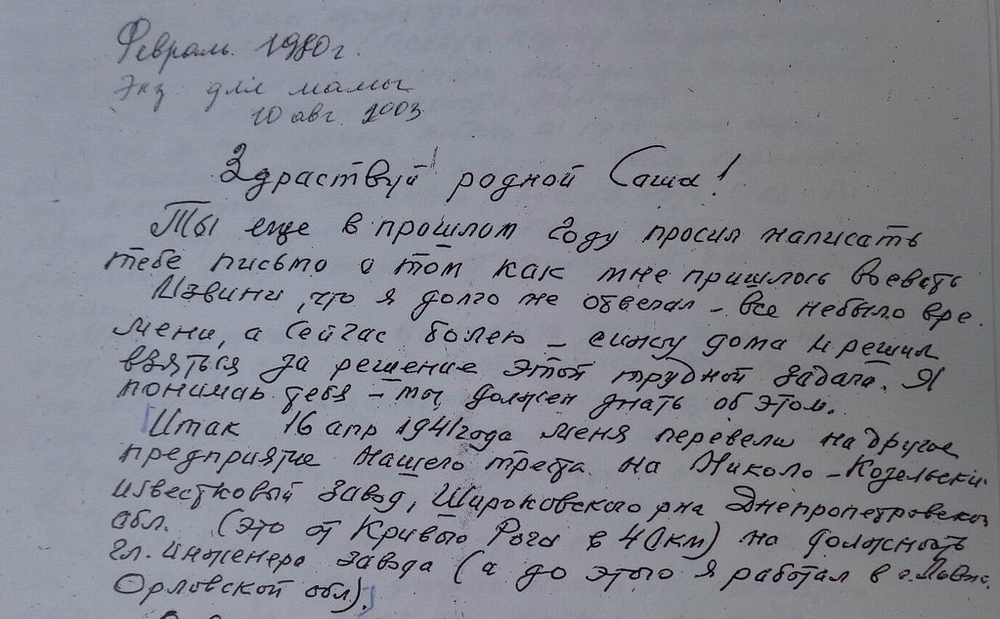 Февраль 1980г.
Экз для мамы
10 авг 2003
Здраствуй родной Саша!
Ты еще в прошлом году просил написать
тебе письмо о том как мне пришлось воевать
Извини, что я долго не отвечал – все небыло вре.
мени, а сейчас болею – сижу дома и решил
взяться за решение этой трудной задачи. Я
понимаю тебя – ты должен знать об этом.
Итак 16 апр 1941 года меня перевели на другое
предприятие нашего треста на Николо-Козельский
известковый завод, Широковского р-на Днепропетровской
обл. (это от Кривого Рога в 40км) на должность
гл. инженера завода (а до этого я работал в г.
Орловской обл).